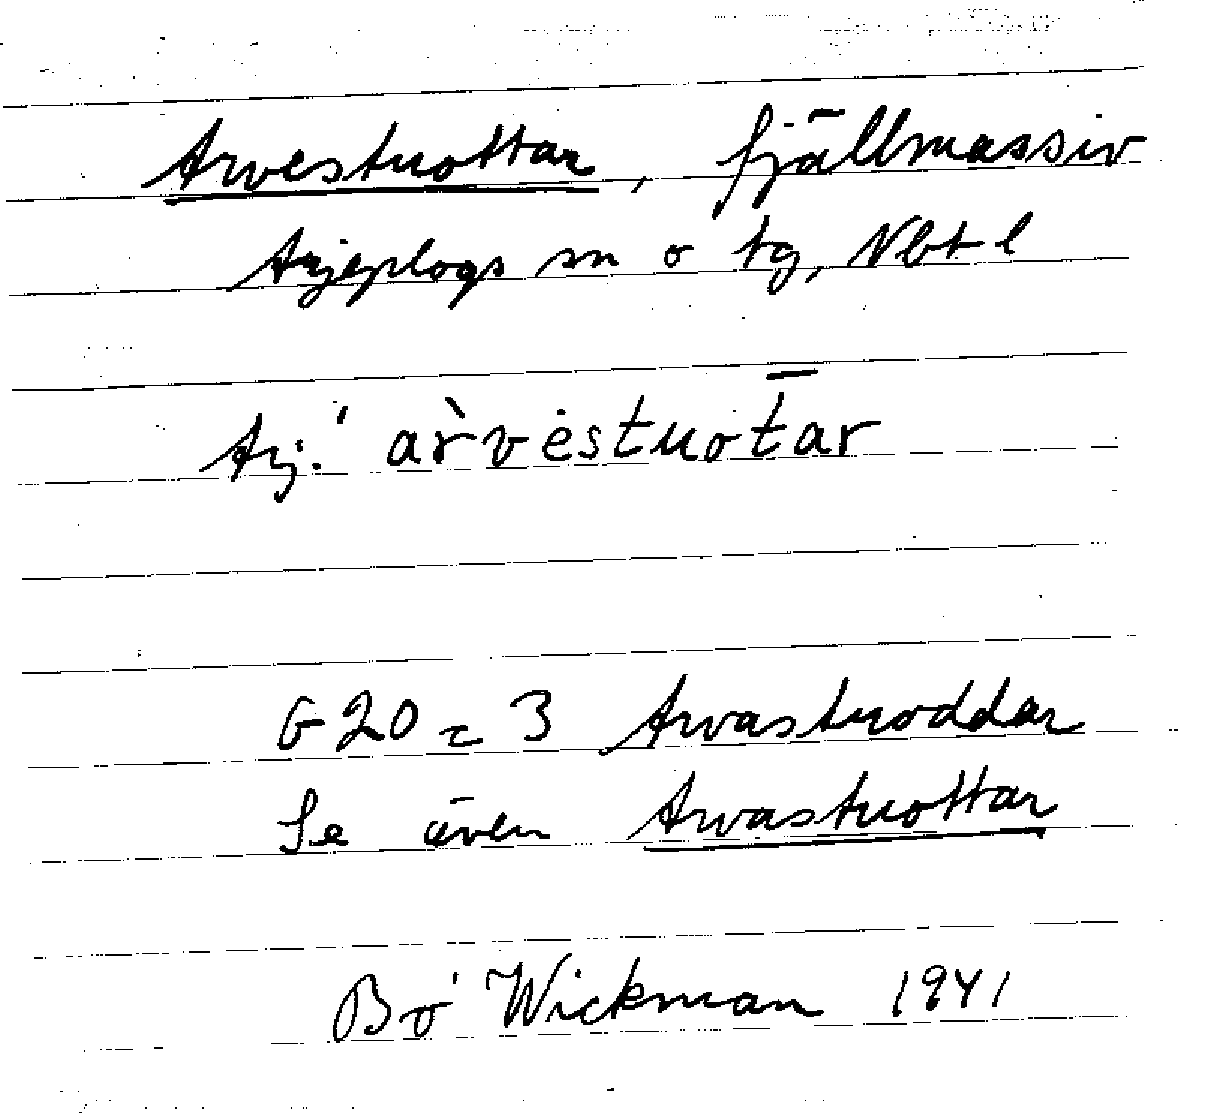 Arvestuottar, fjällmassiv
Arjeplogs sn o tg, Nbt l
Arj.' àrvėstuot̄ar
G20 c 3 Arvastuoddar
Se även Arvastuottar
Bo Wickman 1941